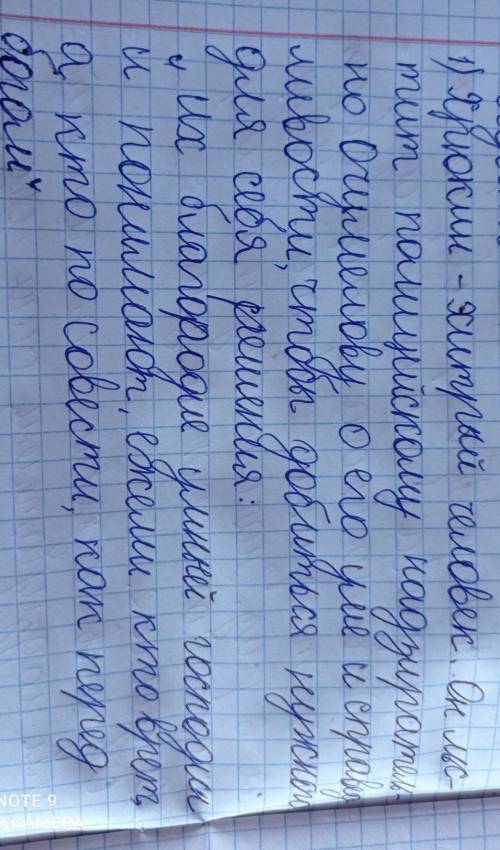 1) Хрюкин - хитрый человек. Он льс-
тит полицейскому надзиратель-
но Очумелову о его уме и справед
ливости, чтобы добиться нужного
для себя решения:
„ Их благородие умней господин
и понимают, ежели кто врет,
а, кто по совести, как перед
богом“
NOTE 9
CAMERA